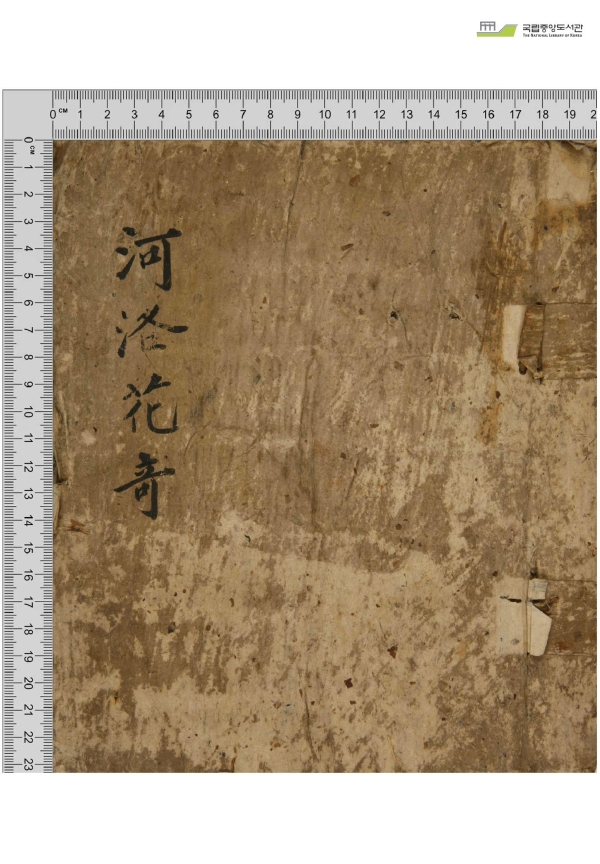 국립중앙도서관
THE NATIONAL LIBRARY OF KOREA
0 CM 1 2 3 4 5 6 7 8 9 10 11 12 13 14 15 16 17 18 19 2
0 CM 1 2 3 4 5 6 7 8 9 10 11 12 13 14 15 16 17 18 19 20 21 22 23
河洛花奇